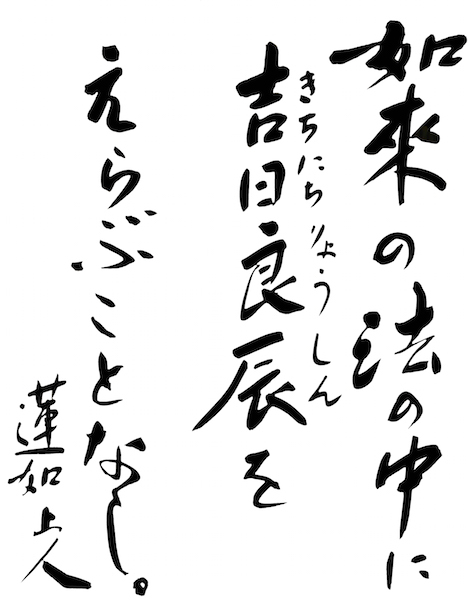 如來の法の中に
吉日良辰を
きちにちりょうしん
えらぶことなし。
蓮如上人